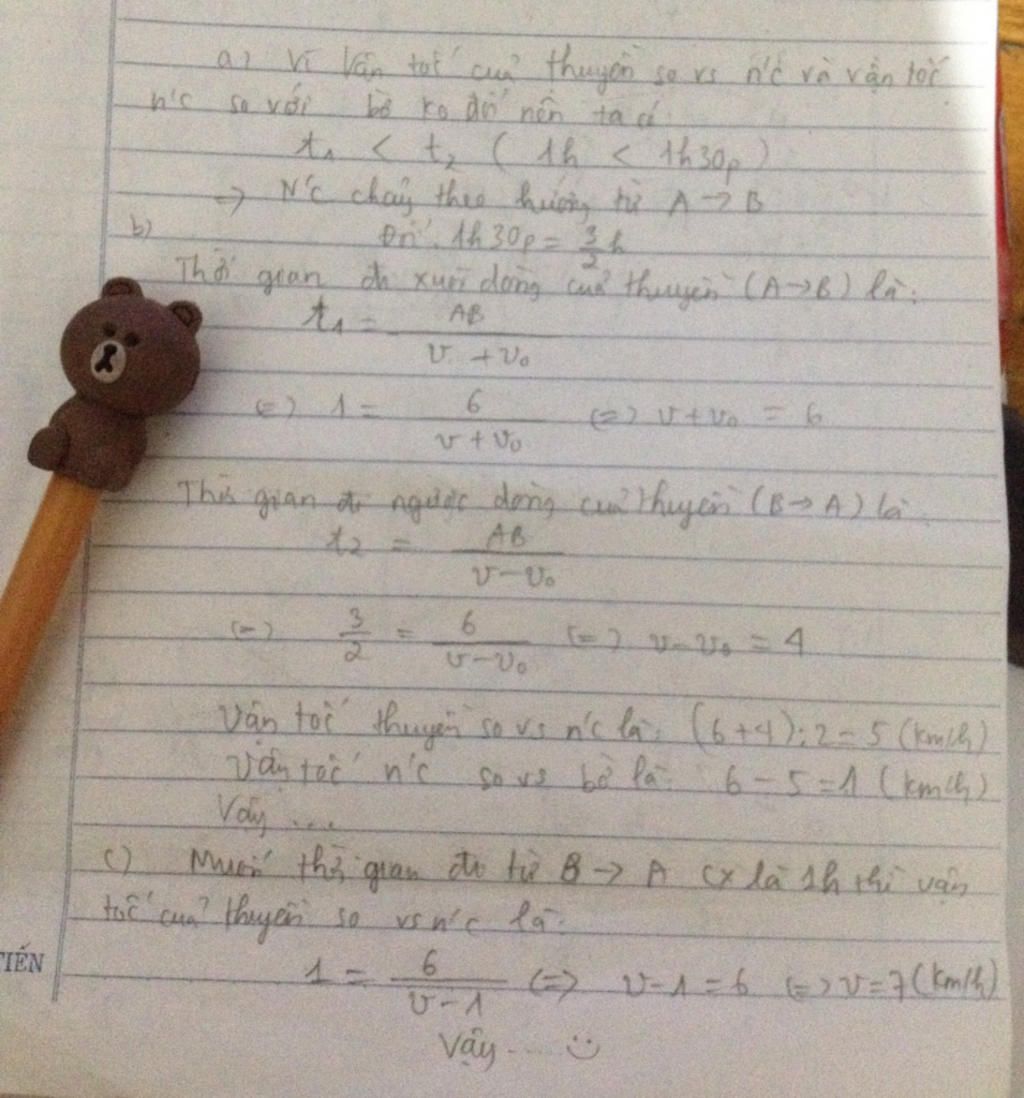 a) Vì vận tốc của thuyền so vs n'c và vận tốc
n'c so với bờ ko đổi nên ta có
t₁ < t₂ ( 1h < 1h30p )
=> N'c chảy theo hướng từ A → B
b) Đổi: 1h30p = 3/2 h
Thời gian đi xuôi dòng của thuyền (A→B) là:
t₁ = AB / (v + v₀)
(=) 1 = 6 / (v + v₀) (=) v + v₀ = 6
Thời gian đi ngược dòng của thuyền (B→A) là:
t₂ = AB / (v - v₀)
(=) 3/2 = 6 / (v - v₀) (=) v - v₀ = 4
Vận tốc thuyền so vs n'c là: (6+4):2 = 5 (km/h)
Vận tốc n'c so vs bờ là: 6 - 5 = 1 (km/h)
Vậy ....
c) Muốn thời gian đi từ B → A cx là 1h thì vận
tốc của thuyền so vs n'c là:
TIẾN
1 = 6 / (v - 1) (=) v - 1 = 6 (=) v = 7 (km/h)
Vậy ....